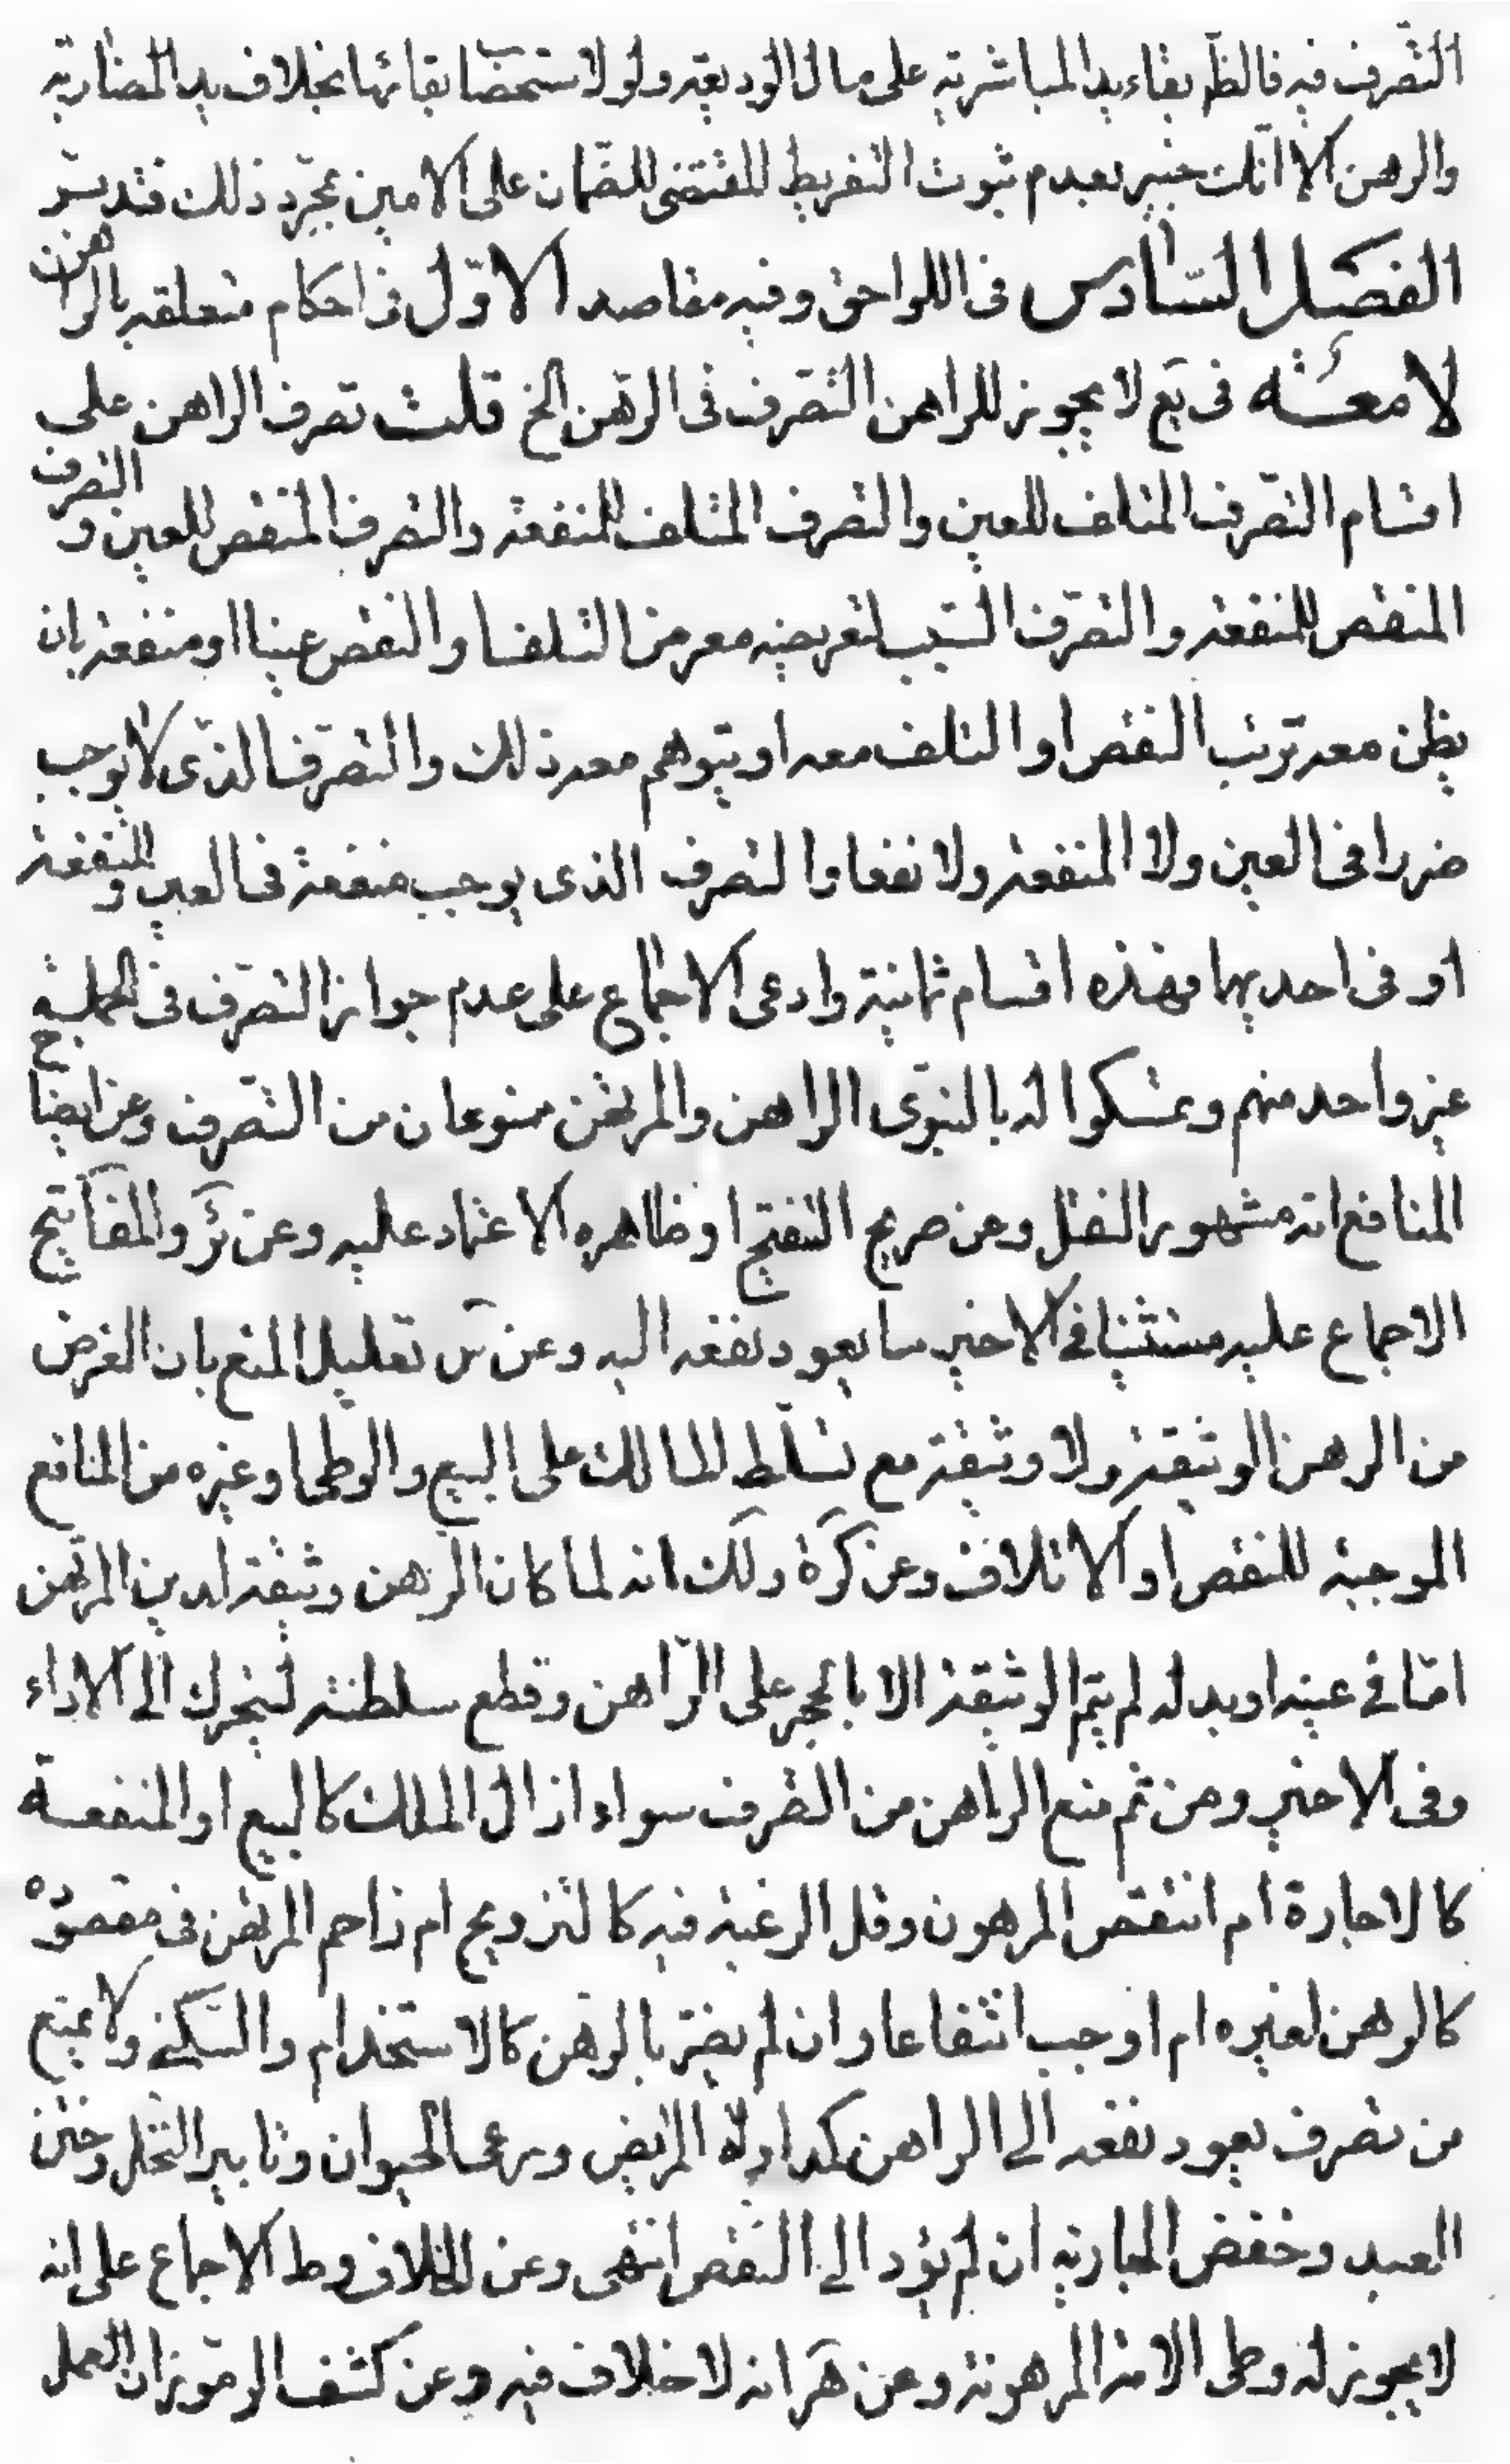 التصرف فيه فالظ بقاء يد المباشرية على مال الوديعة ولو لاستصحاب بقائها بخلاف يد المضاربة
والرهن الا انك خبير بعدم ثبوت التفريط المقتضى للضمان على الامين بمجرد ذلك فتدبر
الفصل السادس فى اللواحق وفيه مقاصد الاول فى احكام متعلقة بالراهن
لامعة فى يع لا يجوز للراهن التصرف فى الرهن الخ قلت تصرف الراهن على
اقسام التصرف المتلف للعين والتصرف المتلف للمنفعة والتصرف المنقص للعين و التصرف
المنقص للمنفعة والتصرف السبب لتعريضه معرض التلف او النقص عينا او منفعة بان
يظن معه ترتب النقص او التلف معه او يتوهم معه ذلك والتصرف الذى لا يوجب
ضررا فى العين ولا المنفعة ولا نفعا والتصرف الذى يوجب منفعة فى العين و المنفعة
او فى احديهما فهذه اقسام ثمانية وادعى الاجماع على عدم جواز التصرف فى الجملة
غير واحد منهم وتمسكوا له بالنبوى الراهن والمرتهن ممنوعان من التصرف وعن ايضاح
المنافع انه مشهور النقل وعن صريح التنقيح او ظاهره الاعتماد عليه وعن ئر والمفاتيح
الاجماع عليه مستثنيا فى الاخير ما يعود نفعه اليه وعن س تعليل المنع بان الغرض
من الرهن الوثيقة ولا وثيقة مع تسلط المالك على البيع والوطى وغيره من المنافع
الموجبة للنقص او الاتلاف وعن كرة ولك انه لما كان الرهن وثيقة لدين المرتهن
اما فى عينه او بدله لم يتم الوثيقة الا بالحجر على الراهن وقطع سلطنته ليتحرك الى الاداء
وفى الاخير ومن ثم منع الراهن من التصرف سواء ازال الملك كالبيع او المنفعة
كالاجارة ام انتقص المرهون وقل الرغبة فيه كالتزويج ام زاحم المرتهن فى مقصوده
كالرهن لغيره ام اوجب انتفاعا وان لم يضر بالرهن كالاستخدام والسكنى ولا يمنع
من تصرف يعود نفعه الى الراهن كمداواة المريض ورعى الحيوان وتابير النخل وختن
العبد وخفض الجارية ان لم يؤد الى النقص انتهى وعن الخلاف وط الاجماع على انه
لا يجوز له وطى الامة المرهونة وعن هر انه لا خلاف فيه وعن كشف الرموز ان العمل